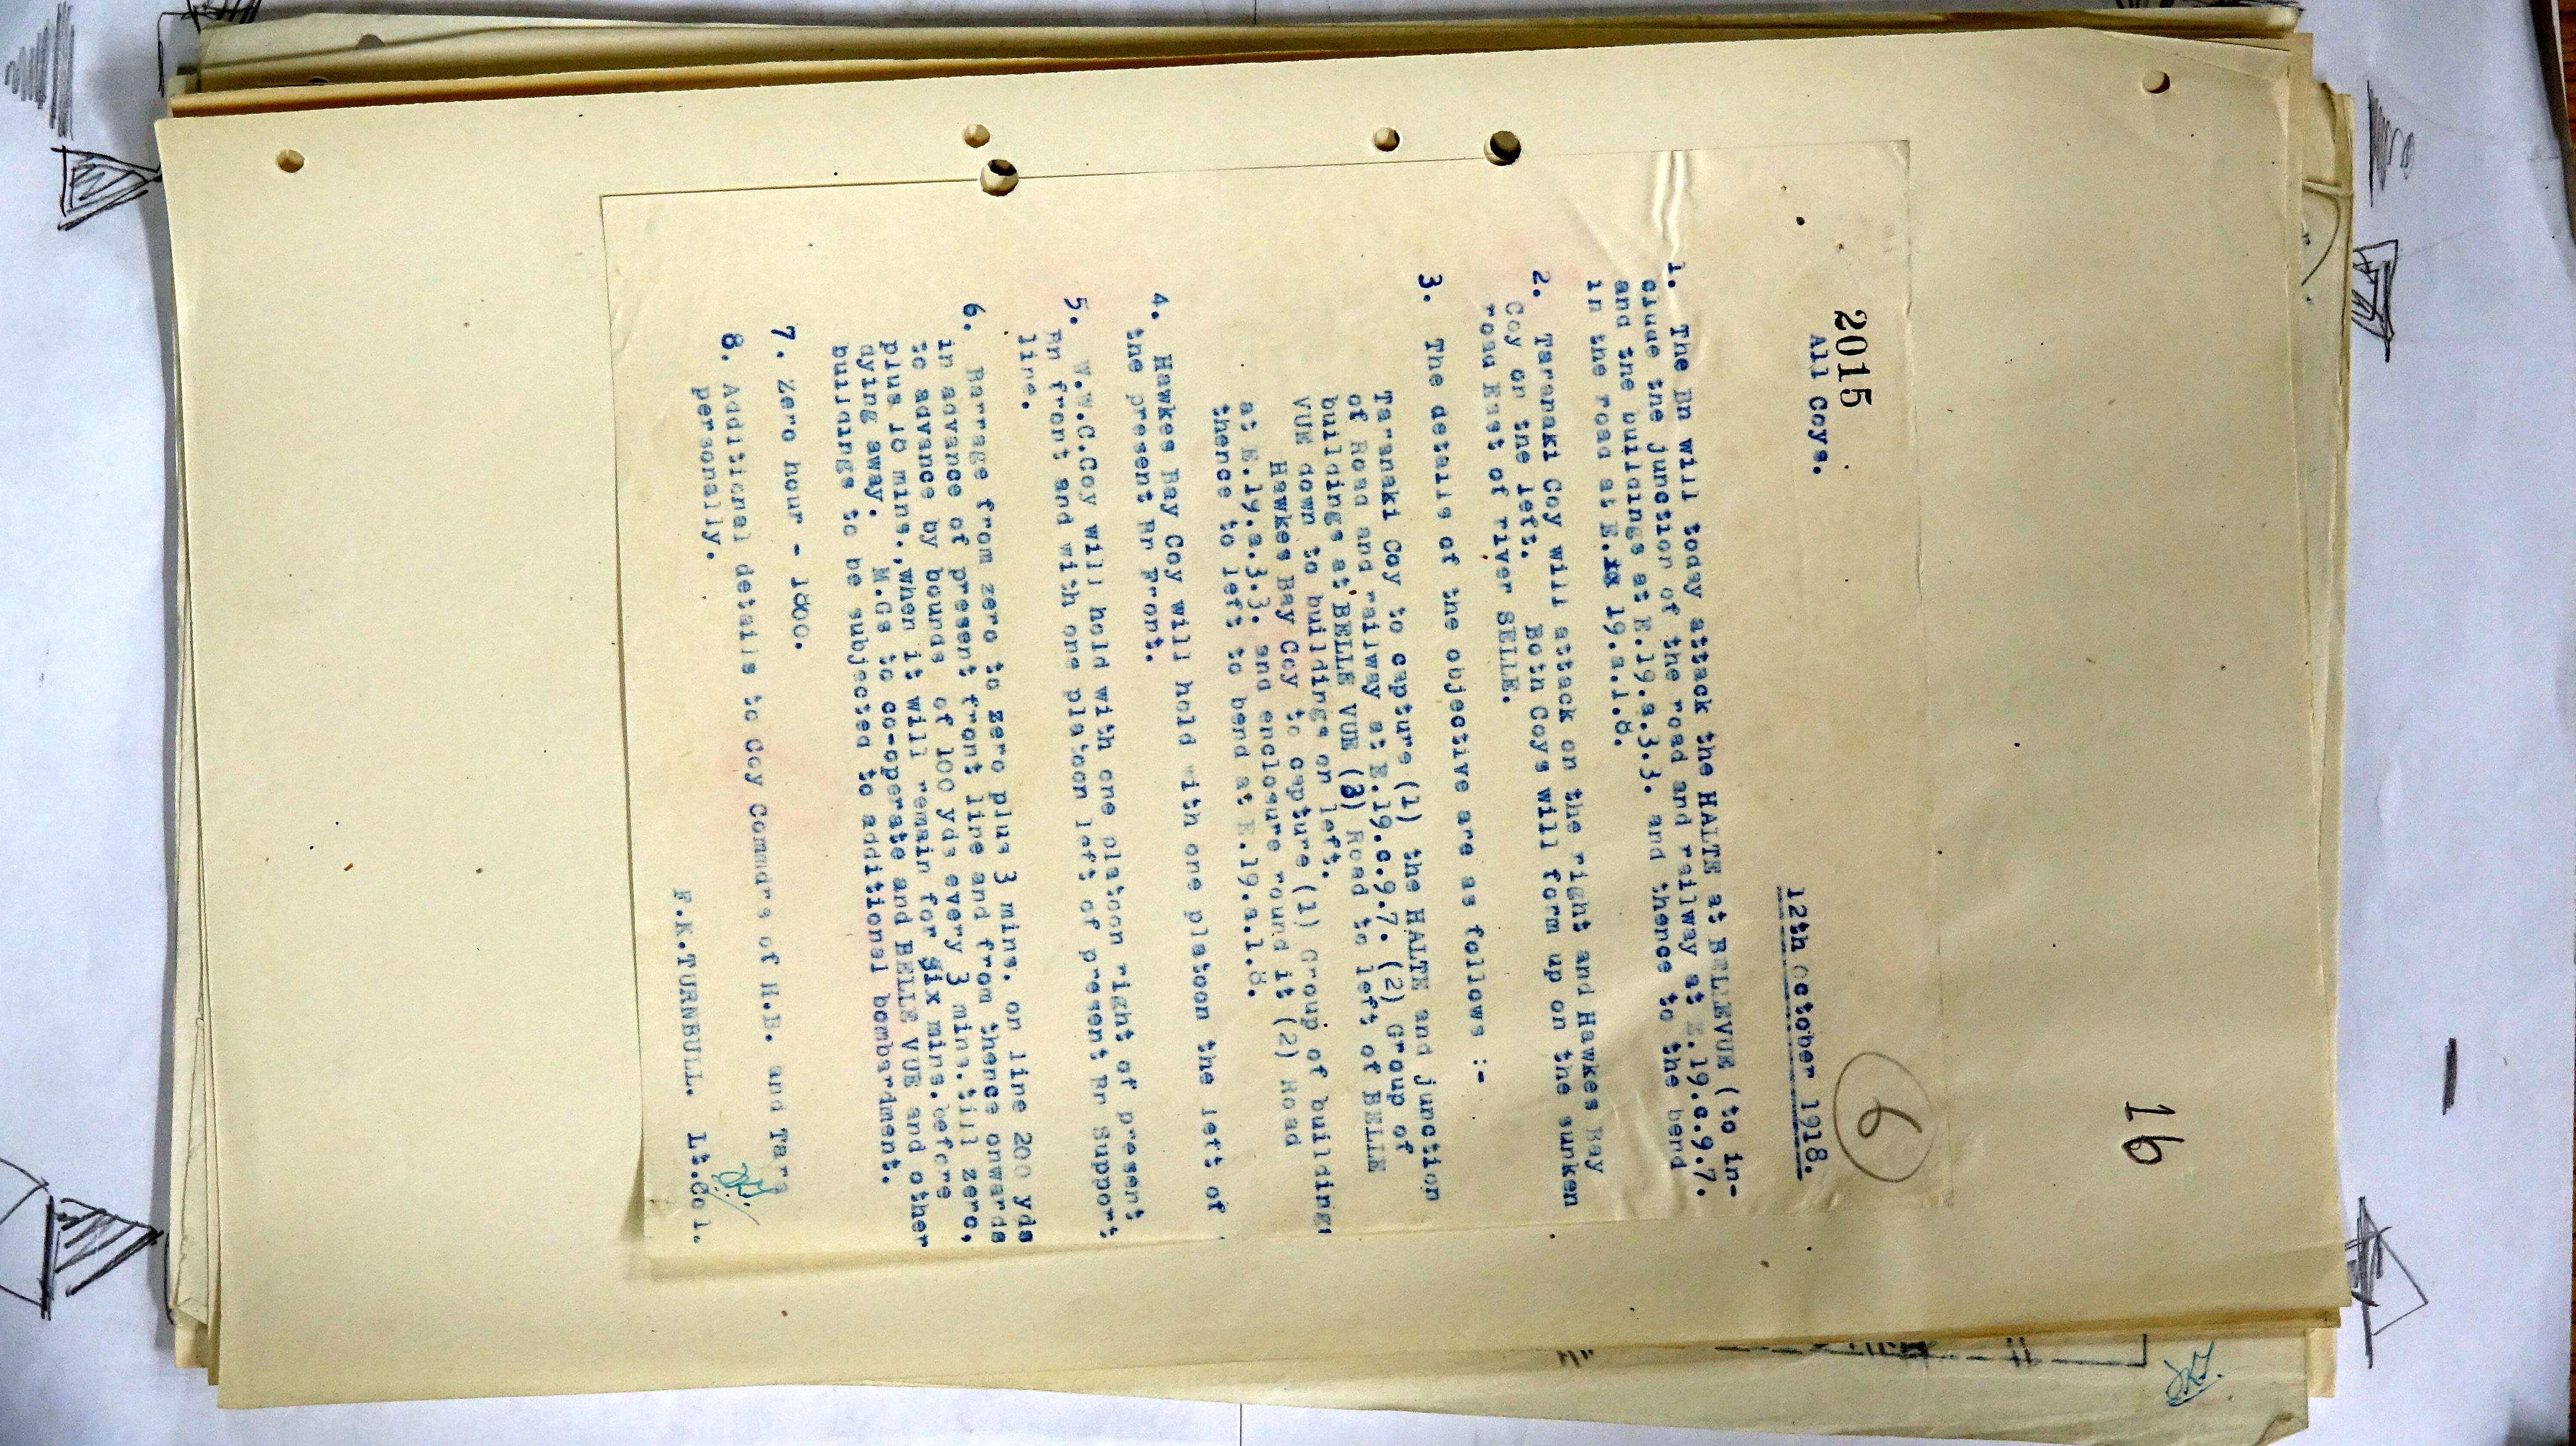 16
6
2015
All Coys.
12th October 1918.
1. The Bn will today attack the HALTE at BELLEVUE (to in-
clude the junction of the road and railway at E.19.c.9.7.
and the buildings at E.19.a.3.3. and thence to the bend
in the road at E.xx 19.a.1.8.
2. Taranaki Coy will attack on the right and Hawkes Bay
Coy on the left. Both Coys will form up on the sunken
road East of river SELLE.
3. The details of the objective are as follows :-
Taranaki Coy to capture (1) the HALTE and junction
of Road and railway at E.19.c.9.7. (2) Group of
buildings at BELLE VUE (3) Road to left of BELLE
VUE down to buildings on left.
Hawkes Bay Coy to capture (1) Group of buildings
at E.19.a.3.3. and enclosure round it (2) Road
thence to left to bend at E.19.a.1.8.
4. Hawkes Bay Coy will hold with one platoon the left of
the present Br Front.
5. W.W.C.Coy will hold with one platoon right of present
Bn front and with one platoon left of present Br Support
line.
6. Barrage from zero to zero plus 3 mins. on line 200 yds
in advance of present front line and from thence onwards
to advance by bounds of 100 yds every 3 mins.till zero,
plus 18 mins.,when it will remain for six mins.before
dying away. M.Gs to co-operate and BELLE VUE and other
buildings to be subjected to additional bombardment.
7. Zero hour - 1800.
8. Additional details to Coy Commdrs of H.B. and Tara
personally.
F.K.TURNBULL. Lt.Col.